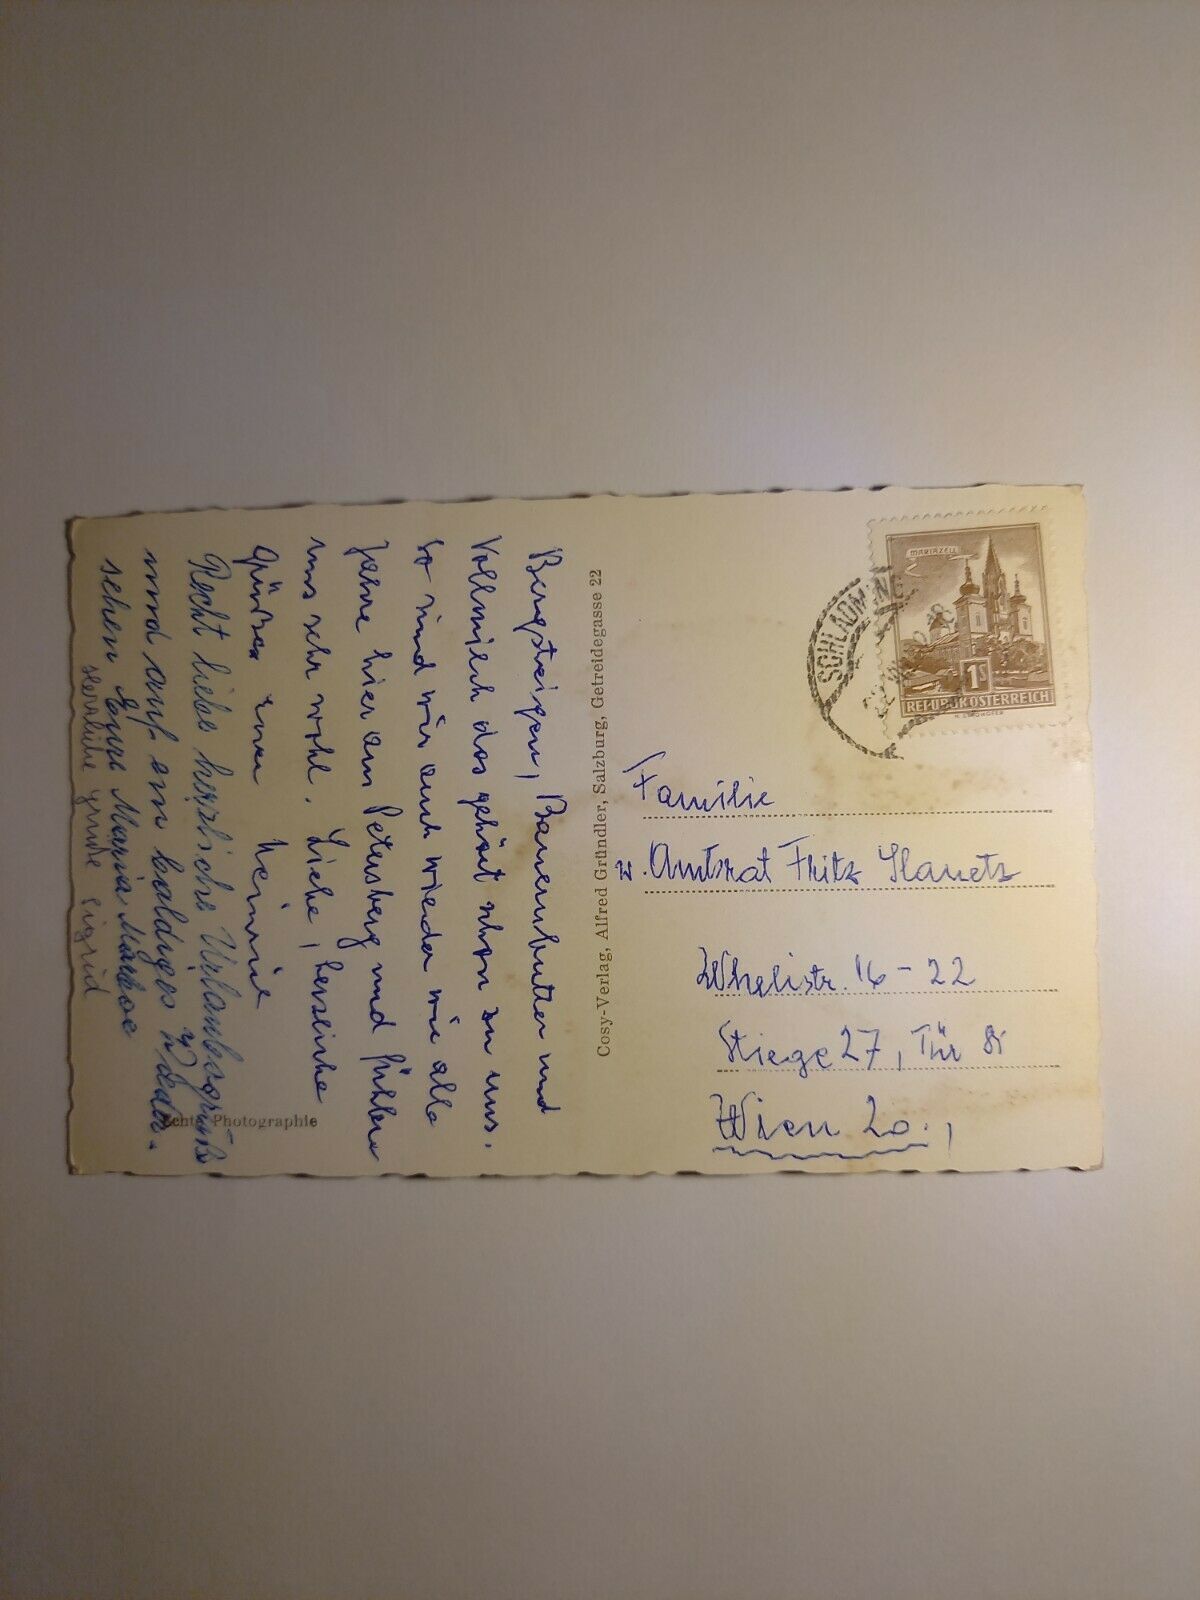 Bergsteigen, Bauernbutter und
Vollmilch das gehört schon zu uns.
So sind wir auch wieder wie alle
Jahre hier am Petersberg und fühlen
uns sehr wohl. Liebe, herzliche
Grüße euer
Recht liebe herzliche Urlaubsgrüße
und auf ein baldiges Wieder-
sehen Eure Maria
Herzliche Grüße Sigrid
Echte Photographie
Cosy-Verlag, Alfred Gründler, Salzburg, Getreidegasse 22
MARIAZELL
1S
REPUBLIK ÖSTERREICH
SCHLADMING
Familie
Amtsrat Fritz
16-22
Stiege 27, Tür
Wien 20.,